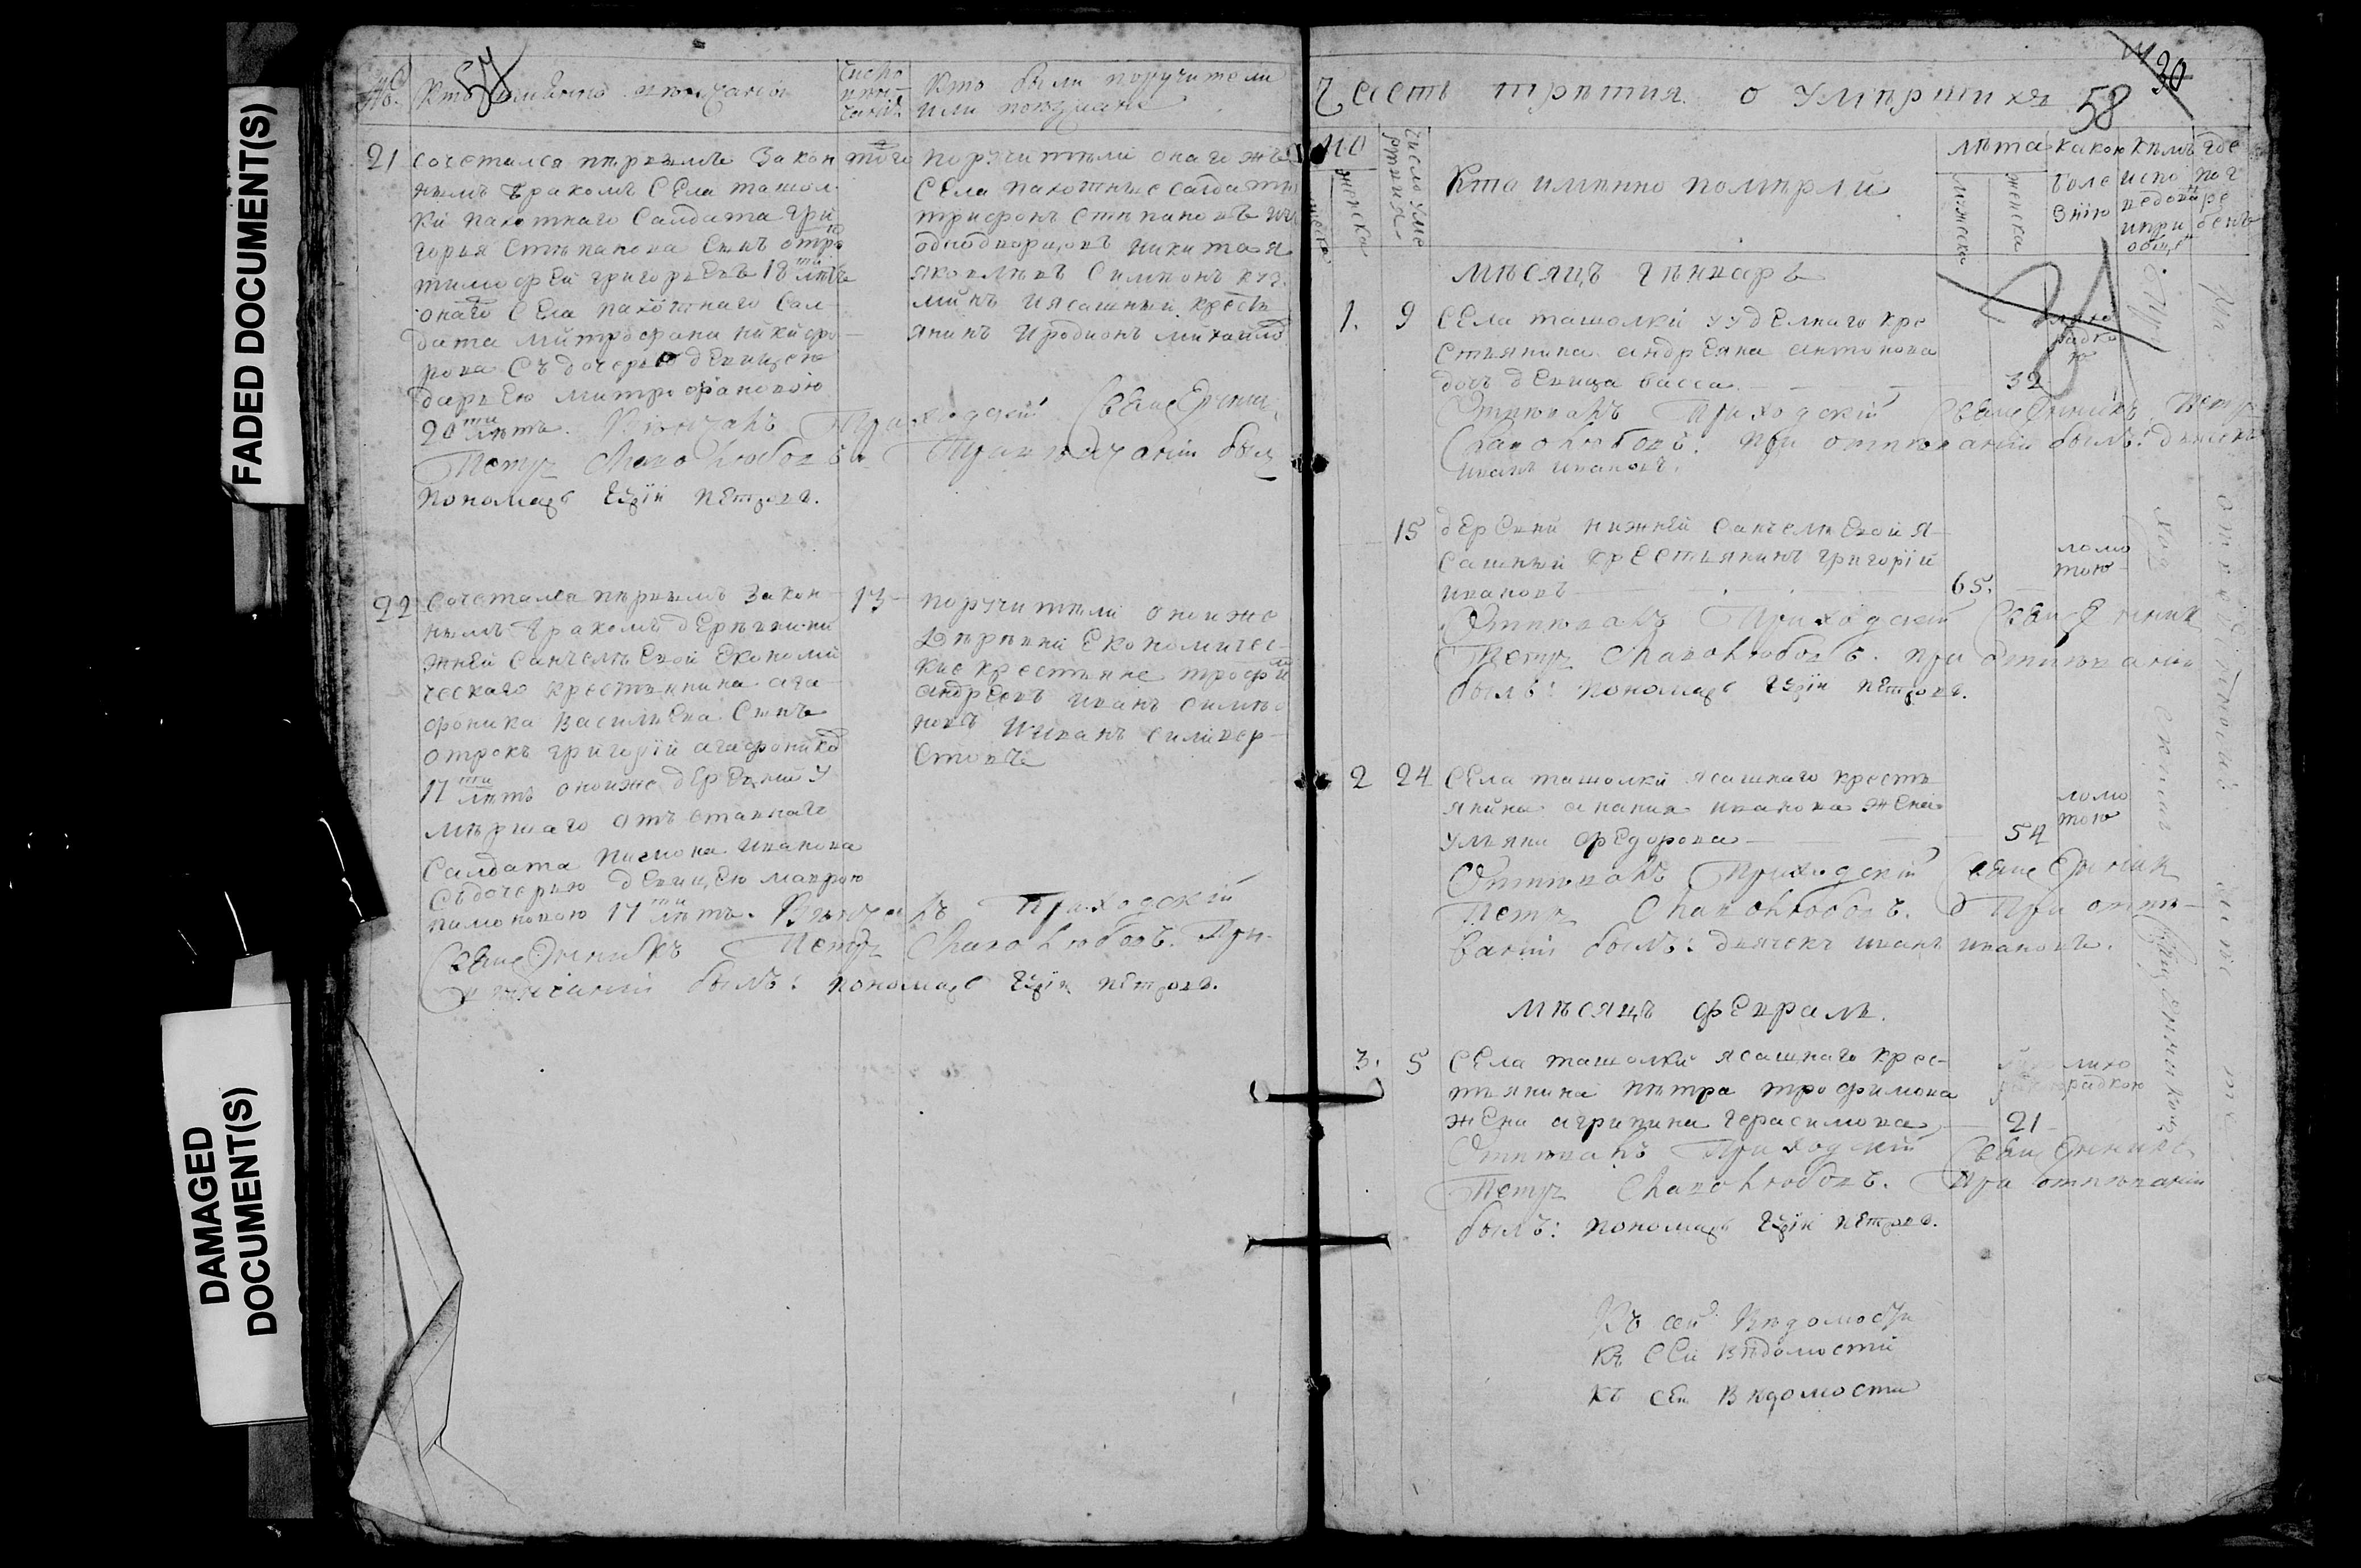 FADED DOCUMENT(S)
DAMAGED
DOCUMENT(S)
57
№ Кто имянно венчаніи
Число
венчанія
Кто были поручители
или поезжане
21 сочетался первымъ закон
нымъ бракомъ села ташол
ки пахотнаго салдата гри
горья степанова сынъ отро
тимофей григорьевъ 18 ти летъ
онаго села пахотнаго сал
дата митрофана никифо
рова съ дочерью девицею
дарьею митрофановою
20 ти летъ. Венчалъ Приходскій Священникъ
Петръ Славолюбовъ. При венчаніи былъ
пономарь петровъ.
того
поручители онаго же
села пахотные салдаты
трифонъ степановъ
однодворцовъ никита
яковлевъ симионъ куз
минъ и ясашный кресть
янинъ иродионъ михайло
22 сочетался первымъ закон
нымъ бракомъ деревни ни
жней санчелеевой економи
ческаго крестьянина ага
фоника василиева сынъ
отрокъ григорій агафонико
17 ти летъ оной же деревни у
мершаго отъставнаго
салдата пимона иванова
съ дочерью девицею маврою
пимоновою 17 ти летъ. Венчалъ Приходскій
Священникъ Петръ Славолюбовъ. При
венчаніи былъ: пономарь петровъ.
13
поручители оной же
деревни економичес
кие крестьяне трофи
андреевъ иванъ симио
новъ и иванъ силивер
стовъ
Часть третия о умершихъ 58
30
число уме
рвшия
женска
Кто имянно померли
лета
мужеска
женска
какою
боле
знію
кемъ
испо
ведованъ
и при
общенъ
где
пог
ре
бенъ
месяцъ генварь
1. 9 села ташолки удельнаго кре
стьянина андреяна антонова
дочь девица васса 32
лихо
радко
ю
Отпевалъ Приходскій Священникъ Петръ
Славолюбовъ. при отпеваніи былъ: дьячекъ
иванъ ивановъ.
15 деревни нижней санчелеевой я
сашный крестьянинъ григорій
ивановъ 65.
ломо
тою
Отпевалъ Приходскій Священникъ
Петръ Славолюбовъ. при отпеваніи
былъ: пономарь петровъ.
2 24 села ташолки ясашнаго кресть
янина анания иванова жена
ульяна федорова 54
ломо
тою
Отпевалъ Приходскій Священникъ
Петръ Славолюбовъ. При отпе
ваніи былъ: дьячекъ иванъ ивановъ.
месяцъ февраль.
3. 5 села ташолки ясашнаго крес
тьянина петра трофимова
жена агрипина герасимова 21
лихо
радкою
Отпевалъ Приходскій Священникъ
Петръ Славолюбовъ. При отпеваніи
былъ: пономарь петровъ.
Къ сей Ведомости
къ сей ведомости
къ сей ведомости